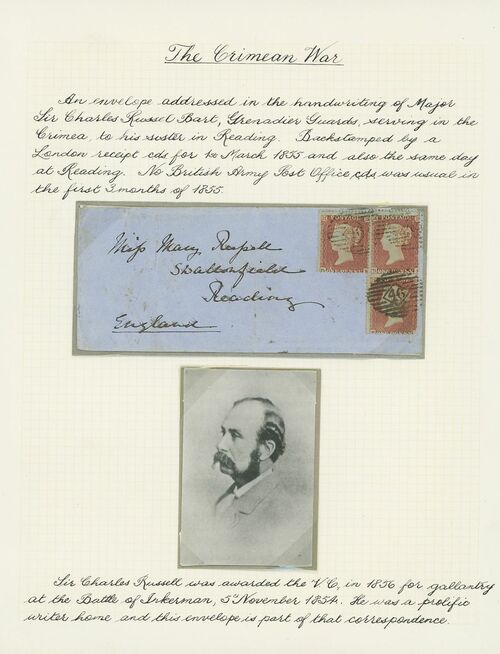 The Crimean War
An envelope addressed in the handwriting of Major
Sir Charles Russel Bart, Grenadier Guards, serving in the
Crimea, to his sister in Reading. Backstamped by a
London receipt cds for March 1855 and also the same day
at Reading. No British Army Post Office cds was usual in
the first 3 months of 1855.
POSTAGE POSTAGE
Miss Mary Russell
Swallowfield
Reading
England
ONE PENNY ONE PENNY
ONE PENNY
Sir Charles Russell was awarded the V.C. in 1856 for gallantry
at the Battle of Inkerman, 5th November 1854. He was a prolific
writer home and this envelope is part of that correspondence.